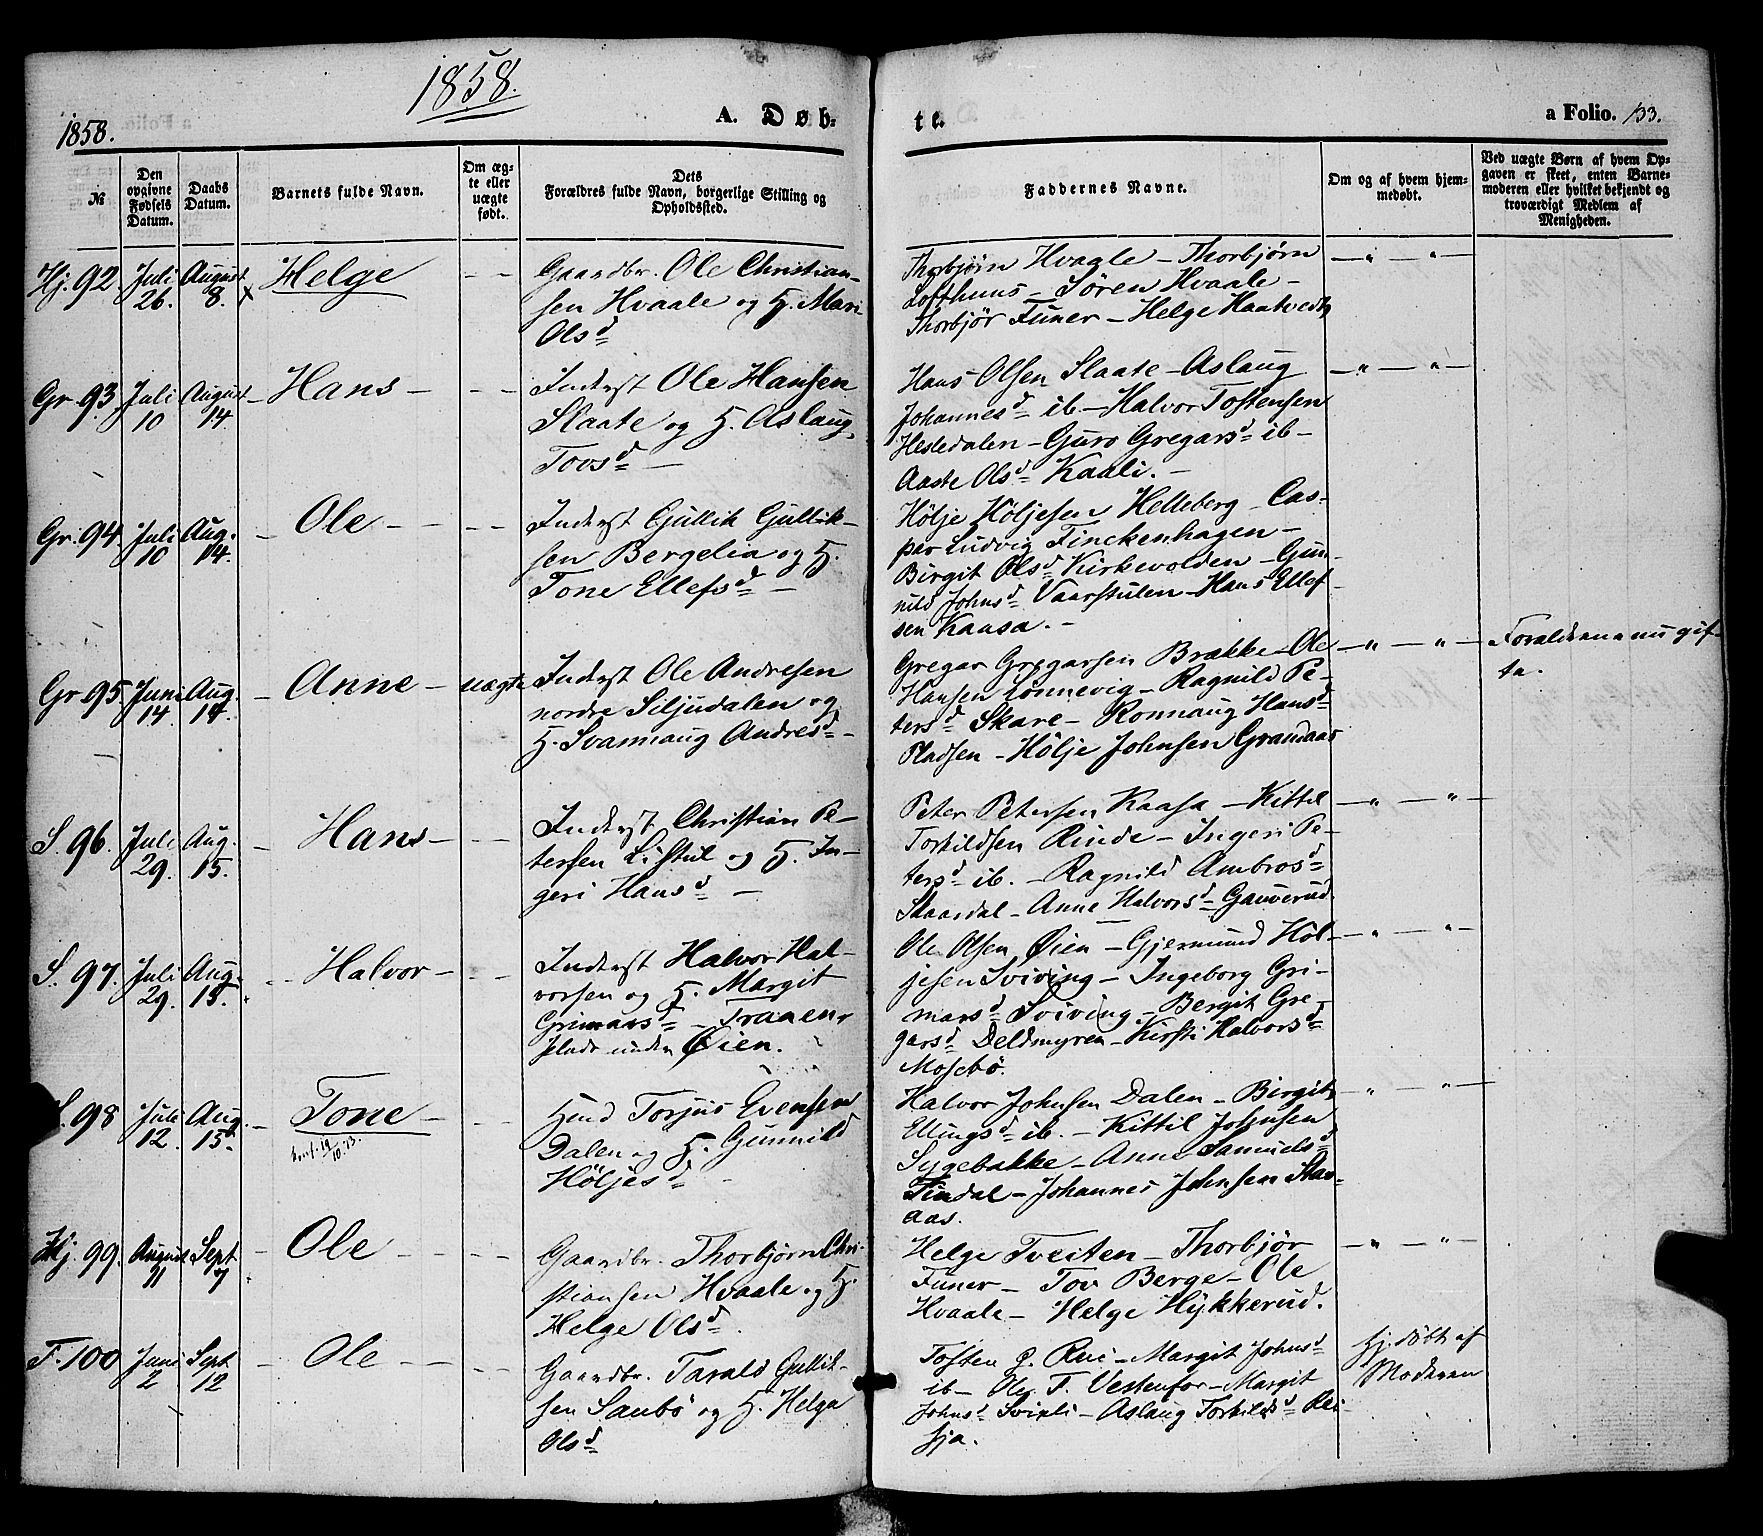 1858.
1858.
A. Døb-
te.
a Folio. 133.
№
Den opgivne Fødsels Datum.
Daabs Datum.
Barnets fulde Navn.
Om ægte eller uægte født.
Dets
Forældres fulde Navn, borgerlige Stilling og
Opholdssted.
Faddernes Navne.
Om og af hvem hjem-
medøbt.
Ved uægte Børn af hvem Op-
gaven er skeet, enten Barne-
moderen eller hvilket bekjendt og
troværdigt Medlem af
Menigheden.
Hj. 92 Juli 26. August 8. x Helge - -
Gaardbr. Ole Christian-
sen Hvaale og H. Mari
Olsd
Thorbjörn Hvaale - Thorbjørn
Lofthuus - Søren Hvaale -
Thorbjör Funer - Helge Haatvedt
Gr. 93 Juli 10 August 14. - Hans - - -
Inderst Ole Hansen
Slaate og H. Aslaug
Tovsd -
Hans Olsen Slaate - Aslaug
Johannesd ib - Halvor Tostensen
Hesledalen - Guro Gregarsd ib -
Aaste Olsd Kaali. -
Gr. 94. Juli 10 Aug. 14. - Ole - - - -
Inderst Gullik Gullik-
sen Bergelia og H.
Tone Ellefsd -
Hölje Höljesen Helleberg - Cas-
per Ludvig Finckenhagen -
Birgit Olsd Kirkevolden - Gun-
nild Johnsd Vaarstulen - Hans Ellef
sen Kaasa. -
Gr. 95. Juni 14. Aug. 14. - Anne - uægte
Inderst Ole Andresen
nordre Siljudalen og
H. Svannaug Andresd -
Gregar Gregarsen Brække - Ole
Hansen Lonnevig - Ragnild Pe-
tersd Skare - Ronnaug Hansd
Pladsen - Hölje Johnsen Graudaas
Forældrene nu gif-
te.
S. 96. Juli 29. Aug. 15. - Hans - - -
Inderst Christian Pe-
tersen Listul og H. In-
geri Hansd -
Peter Petersen Kaasa - Kittil
Torkildsen Rinde - Ingeri Pe-
tersd ib. - Ragnild Ambrosd
Skaardal - Anne Halvorsd Gauverud
S. 97. Juli 29. Aug. 15. - - Halvor - - -
Inderst Halvor Hal-
vorsen og H. Margit
Grimaasd - Traaen,
plads under Øien.
Ole Olsen Øien - Gjermund Höl-
jesen Sviving - Ingeborg Gri-
marsd Sviving - Bergit Gre-
garsd Deldmyren - Kirsti Halvorsd
Mosebö.
S. 98 Juli 12. Aug. 15. - Tone - - -
Konf. 19/10.73.
Hmd Torjus Evensen
Dalen og H. Gunnild
Höljesd -
Halvor Johnsen Dalen - Birgit
Ellingsd ib. - Kittil Johnsen
Sygebakke - Anne Samuelsd
Tindal - Johannes Johnsen Skar-
aas.
Hj. 99. August 11 Sept. 7 - Ole - - - -
Gaardbr. Thorbjørn Chri-
stiansen Hvaale og H.
Helge Olsd
Helge Tveiten - Thorbjör
Funer - Tov Berge - Ole
Hvaale - Helge Hykkerud.
T. 100 Juni 2 Sept 12 - Ole - - -
Gaardbr. Tarald Gullik-
sen Saubö og H. Helga
Olsd
Tosten G. Rui - Margit Johnsd
ib - Ole T. Vestenfor - Margit
Johnsd Svinli - Aslaug Torkildsd Rei-
sja.
hj. döbt af
Moderen